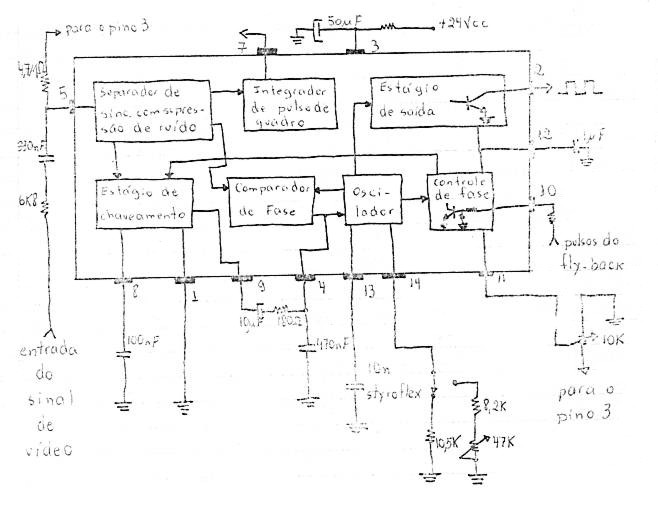 para o pino 3
50µF
+24Vcc
7
3
4,7MΩ
5
Separador de
sinc. com supres-
são de ruído
Integrador
de pulso de
quadro
Estágio
de saída
2
330nF
12
1µF
6K8
Estágio de
chaveamento
Comparador
de Fase
Osci-
lador
Controle
de fase
10
pulsos do
fly-back
8
1
9
4
13
14
11
10µF
180Ω
10K
100nF
470nF
10n
styroflex
entrada
do
sinal
de
vídeo
para o
pino 3
8,2K
10,5K
47K